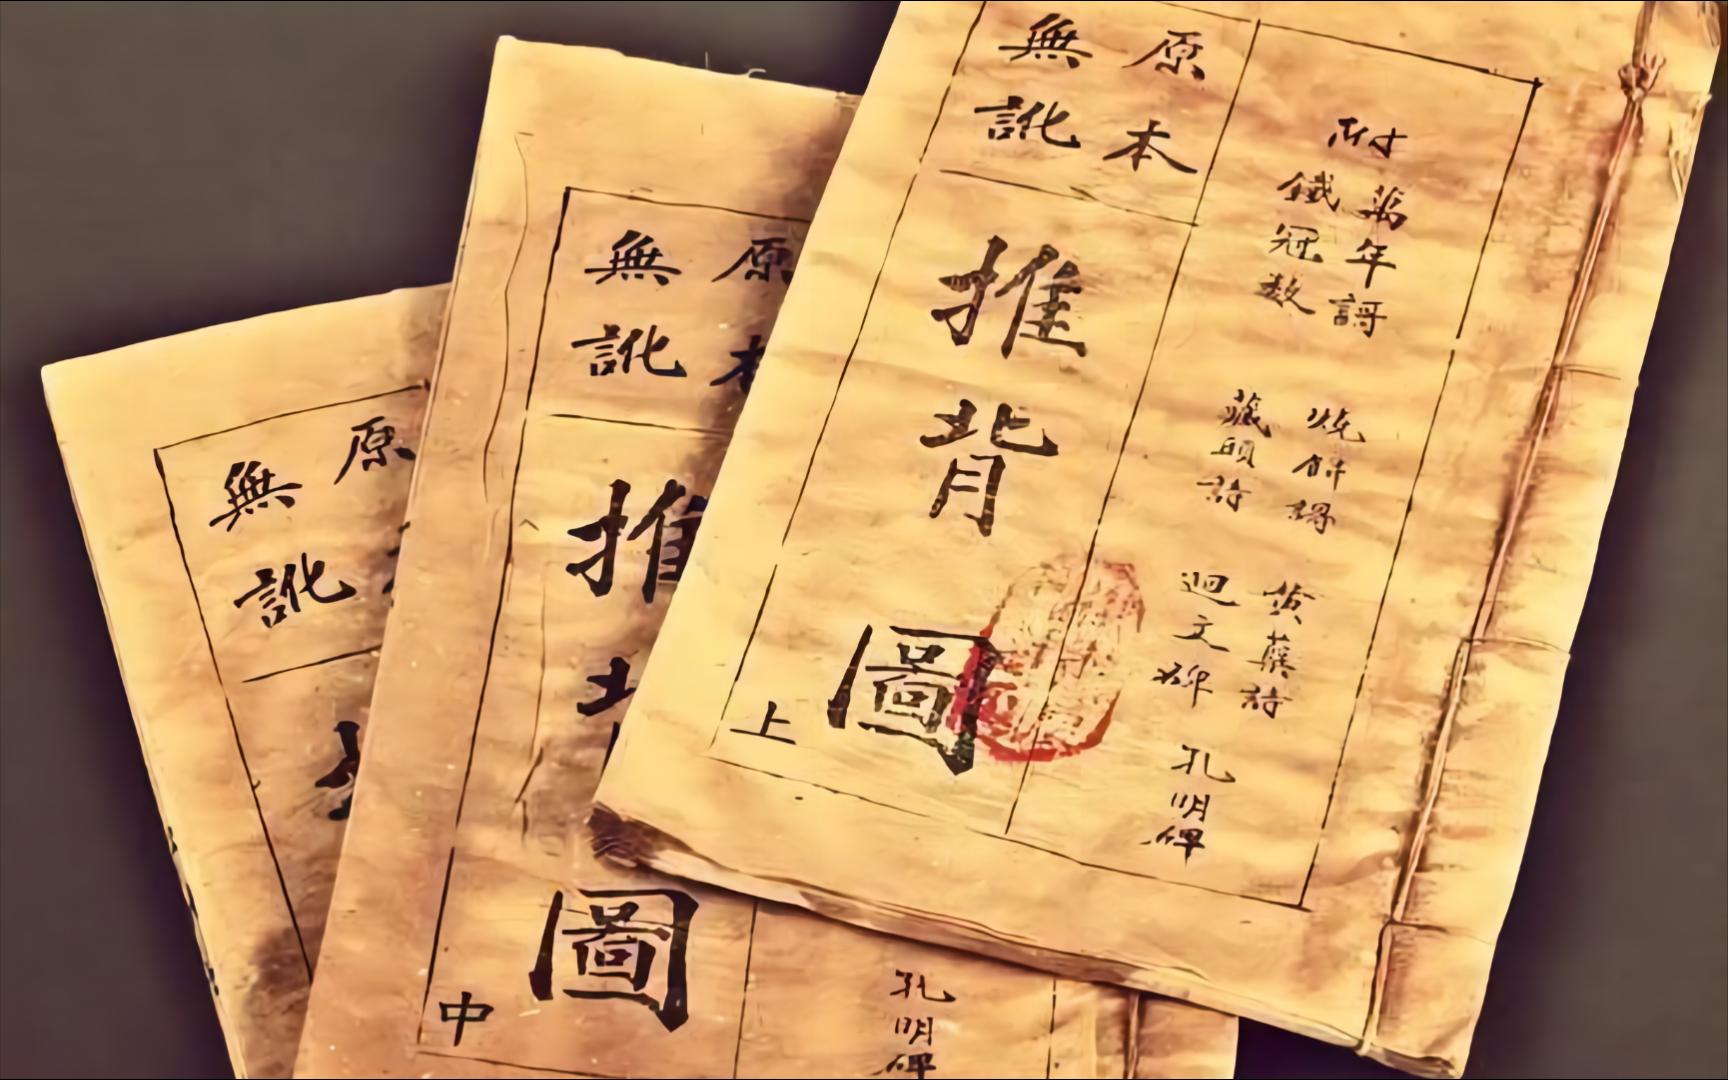 附
萬年謌
鐵冠數
燒餅謌
藏頭詩
黄蘖詩
迴文碑
孔明碑
原本
無訛
推背圖
上
原本
無訛
推背圖
中
孔明碑
原
無訛